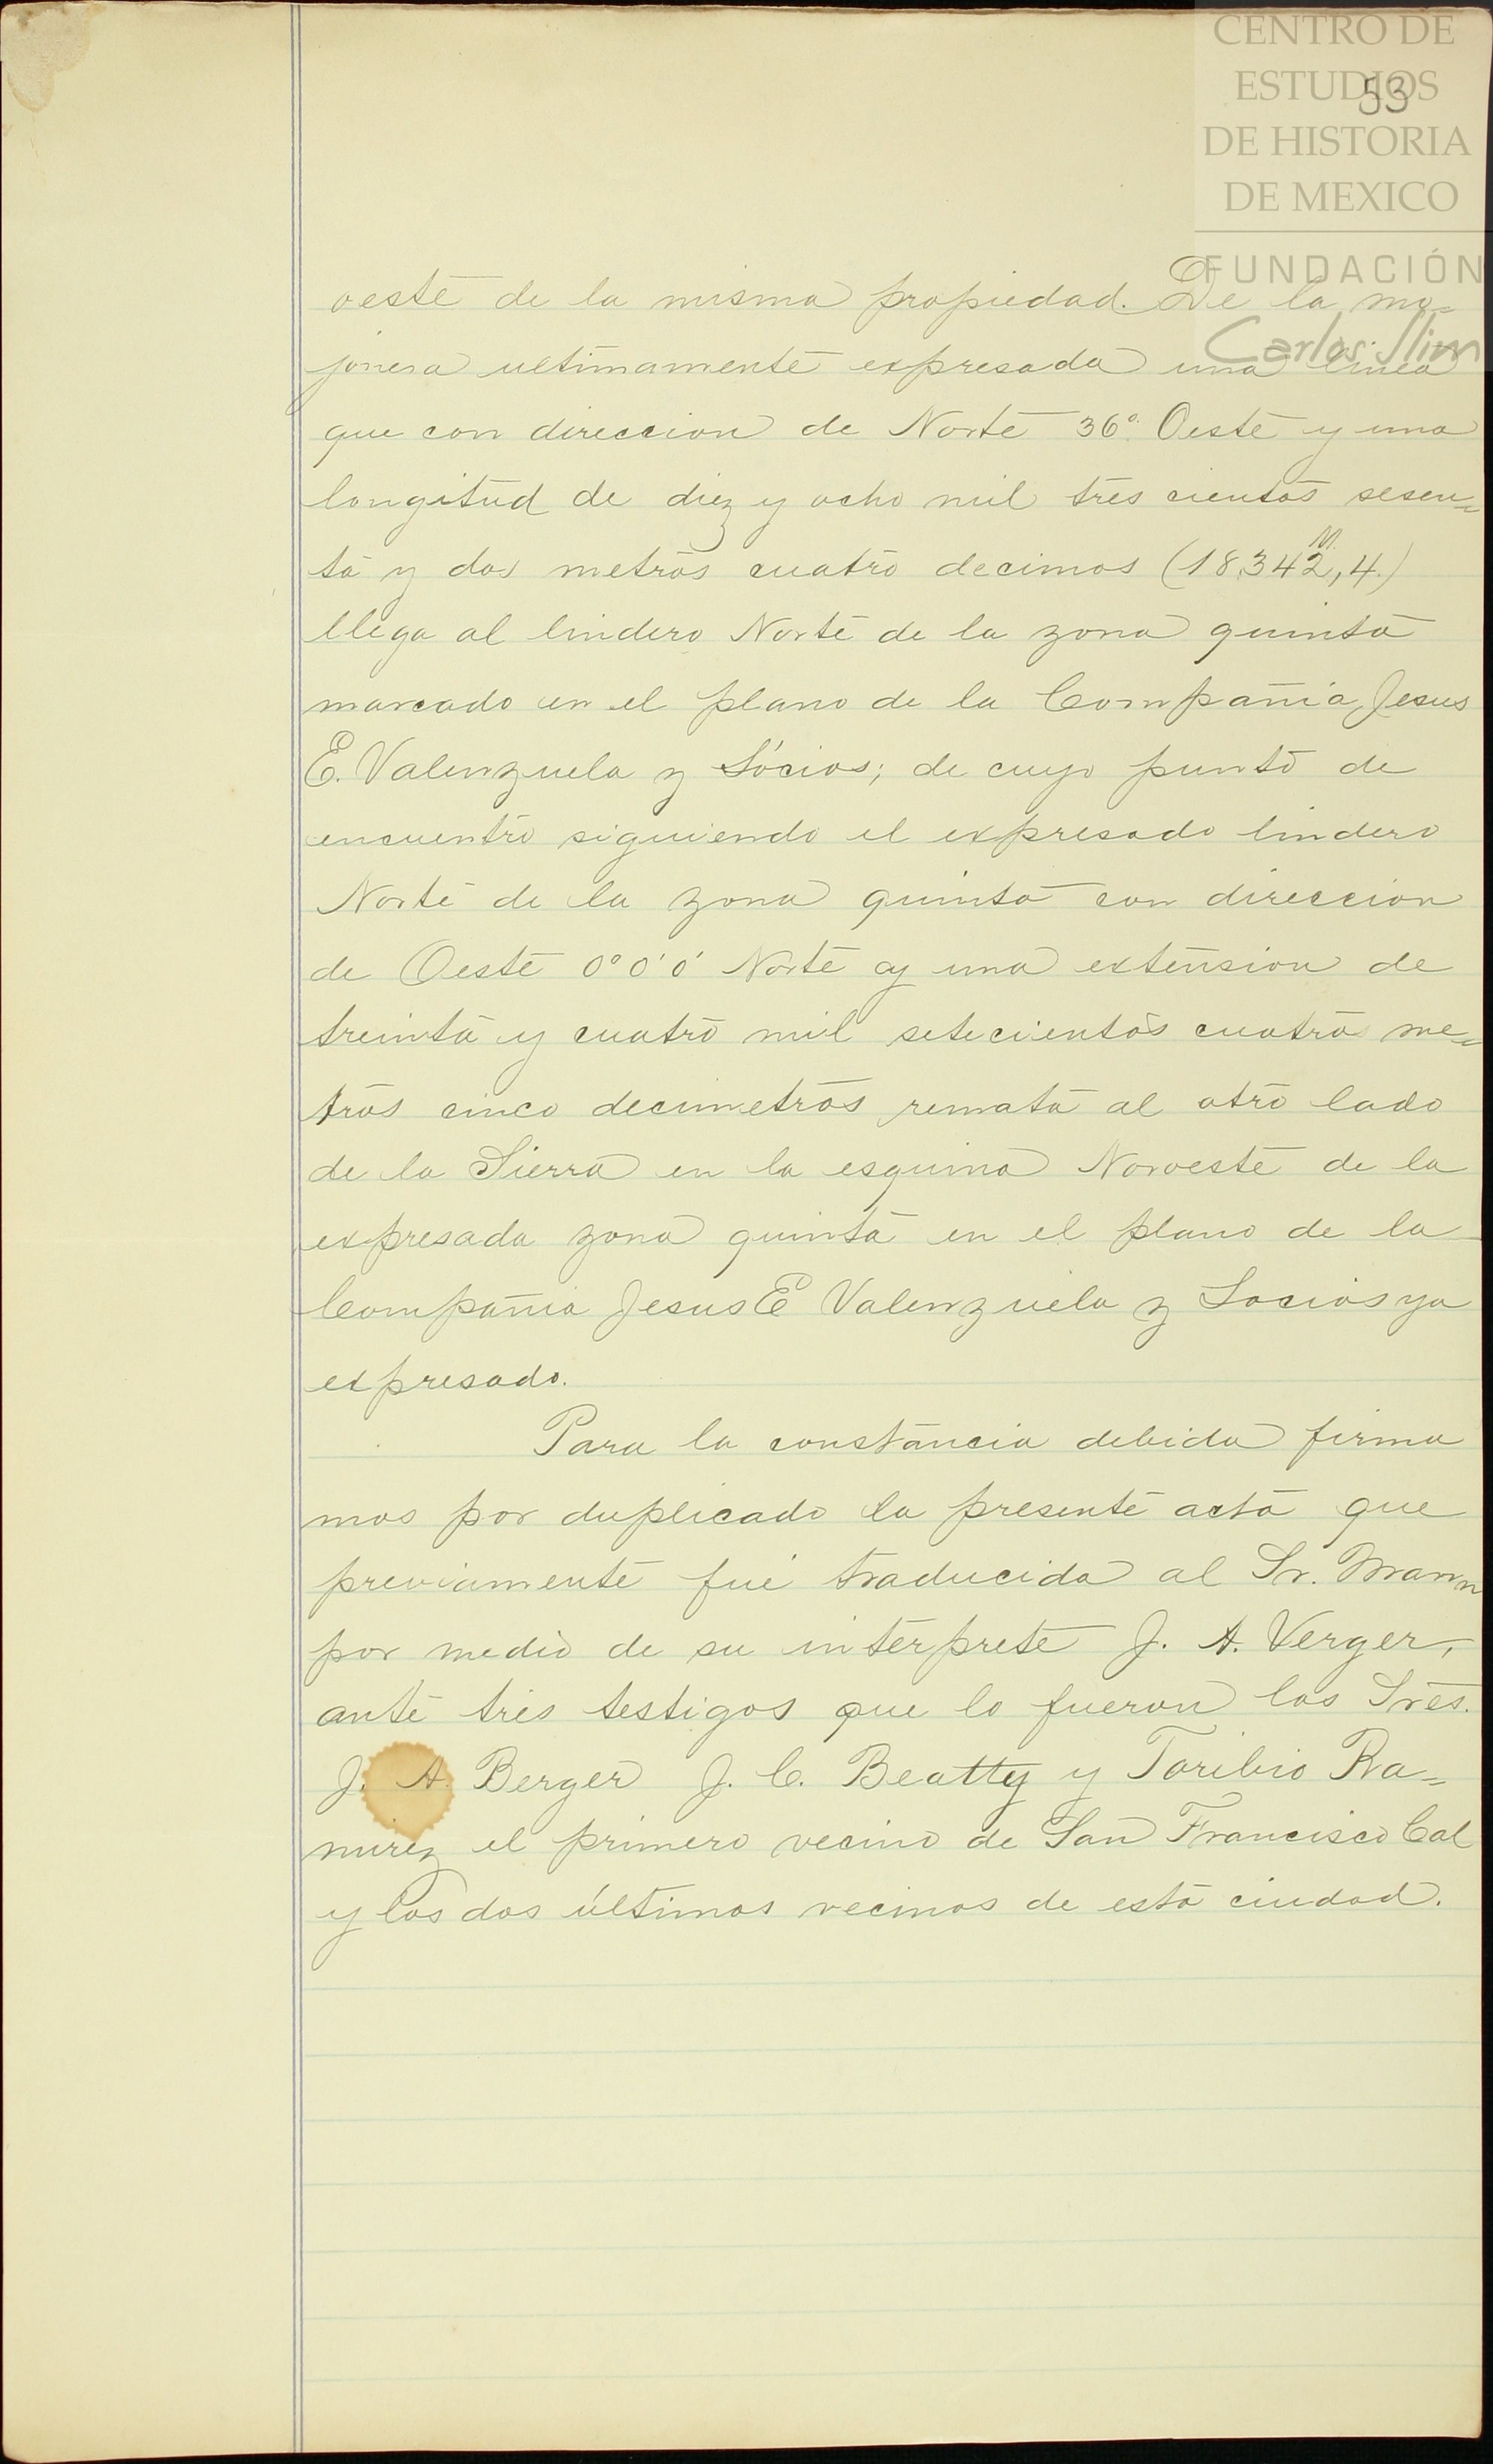 CENTRO DE
ESTUDIOS
53
DE HISTORIA
DE MEXICO
FUNDACIÓN
Carlos Slim
oeste de la misma propiedad. De la mo-
jonera ultimamente expresada una linea
que con direccion de Norte 36° Oeste y una
longitud de diez y ocho mil tres cientos sesen-
ta y dos metros cuatro decimos (18,342,M.4.)
llega al lindero Norte de la zona quinta
marcado en el plano de la Compañia Jesus
E. Valenzuela y Sócios; de cuyo punto de
encuentro siguiendo el expresado lindero
Norte de la zona quinta con direccion
de Oeste 0° 0' 0' Norte y una extension de
treinta y cuatro mil setecientos cuatro me-
tros cinco decimetros remata al otro lado
de la Sierra en la esquina Noroeste de la
expresada zona quinta en el plano de la
Compañia Jesus E Valenzuela y Socios ya
expresado.
Para la constancia debida firma
mos por duplicado la presente acta que
previamente fué traducida al Sr. Mann
por medio de su interprete J. A. Verger,
ante tres testigos que lo fueron los Sres.
J. A. Berger J. C. Beatty y Toribio Ra-
mirez el primero vecino de San Francisco Cal
y los dos últimos vecinos de esta ciudad.